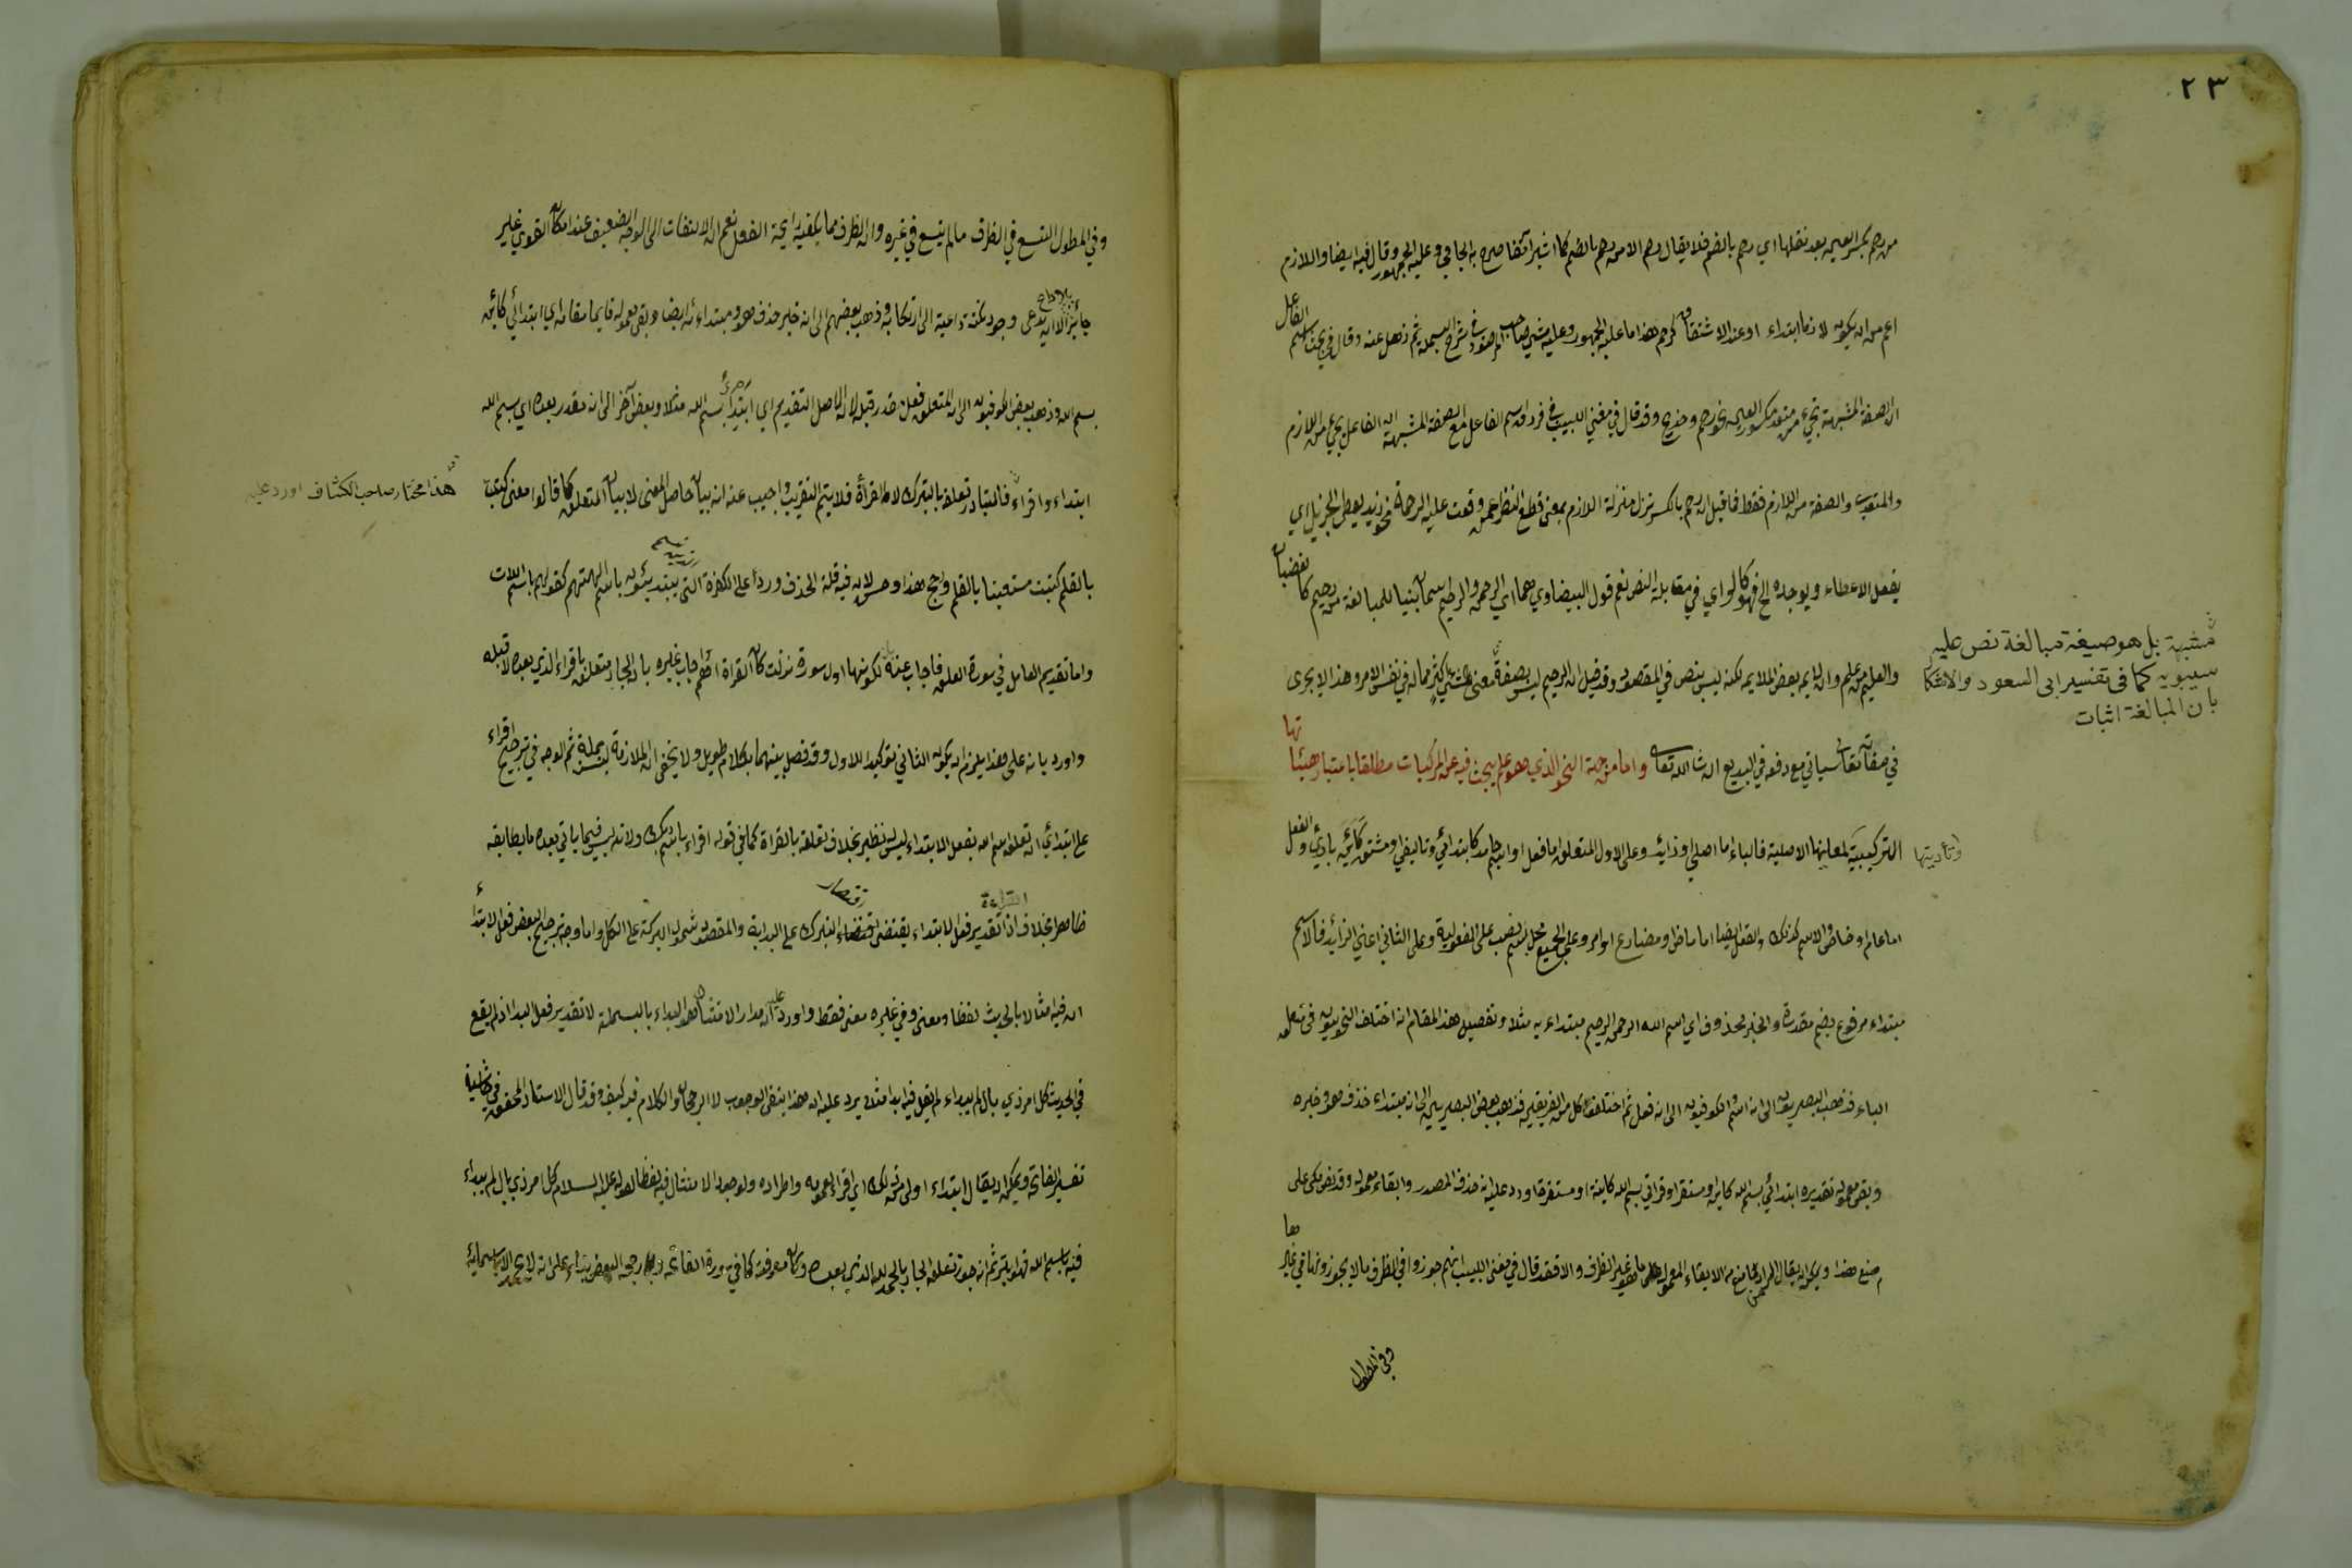 ٢٣
من رحم بكسر العين بعد نقلها اي رحم بالضم فلا يقال رحم الا من رحم بالضم كما اشير آنفا صرح به الجامي وعليه الجمهور وقال فيه ايضا واللازم
اعم من ان يكون لازما ابتداء او عند الاشتقاق كرحم هذا ما عليه الجمهور وعليه مشى صاحب في شرح البسملة ثم ذهل عنه وقال في بحث اسم الفاعل
ان الصفة المشبهة تجيء من متعد مكسور العين نحو رحم وقد قال في مغني اللبيب في فرق اسم الفاعل مع الصفة المشبهة ان الفاعل يجيء من اللازم
والمتعدي والصفة من اللازم فقط فما قيل ان رحم بالكسر نزل منزلة اللازم بمعنى قطع النظر عمن وقعت عليه الرحمة نحو زيد يعطي الجزيل اي
يفعل الاعطاء ويوجده الخ فهو كالراي في مقابلة النص نعم قول البيضاوي هما اي الرحمن والرحيم اسمان بنيا للمبالغة من رحيم كما غضبان
والعليم من علم وان يعض الملايم لكنه ليس بنص في المقصود وقد قيل ان الرحيم ليس بصفة معنى مما له في نفس الامر وهذا لا يجرى
مشبهة بل هو صيغة مبالغة نص عليه
سيبويه كما في تفسير ابى السعود والاشكا
بان المبالغة اثبات
في صفاته تعالى سياتي مع دفعه في البديع ان شاء الله تعالى واما من جهة النحو الذي هو علم يبحث فيه عن المركبات مطلقا باعتبار هيئاتها
التركيبية لمعانيها الاصلية فالباء اما اصلي او زائد وعلى الاول المتعلق اما فعل او اسم جامد كابتدائي وتاليفي او مشتق كَائن بادئ والفعل
وتأديتها
اما عام او خاص والاسم كذلك والفعل ايضا اما ماض او مضارع او امر وعلى الجميع محل بسم نصب على المفعولية وعلى الثاني اعني الزائد فالاسم
مبتداء مرفوع بضم مقدرة والخبر محذوف اي اسم الله الرحمن الرحيم مبتداء به مثلا وتفصيل هذا المقام انه اختلف النحويون في متعلق
الباء فذهب البصريون الى انه اسم والكوفيون الى انه فعل ثم اختلف كل من الفريقين فذهب بعض البصريين الى انه مبتداء حذف هو وخبره
وبقى معموله تقديره ابتدائي بسم الله كاين او مستقر او قراتي بسم الله كاينة او مستقرة اورد عليه انه حذف المصدر وابقاء معموله وقد نص مكي على
منع هذا ويمكن ان يقال المراد من الابقاء المعمول غير الظرف والا فقد قال في مغنى اللبيب انهم جوزوا في الظرف ما لا يجوزونها في غيرها
وفي المطول
وفي المطول اتسع في الظرف ما لم يتسع في غيره وان الظرف مما يكفيه رايحة الفعل نعم ان الالتفات الى الوجه الضعيف عند امكان القوي غير
جائز الا ان يدعى وجود نكتة داعية الى ارتكابه وذهب بعضهم الى انه خبر حذف هو ومبتداءه ايضا وبقى معموله قايما مقامه اي ابتدائي كائن
بسم الله وذهب بعض الكوفيون الى ان المتعلق فعل قدر قبله لان الاصل التقديم اي ابتدأ بسم الله مثلا وبعض آخر الى انه مقدر بعده اي بسم الله
ابتداء واقراء فالمتبادر تعلقه بالتبرك لا بالقرأة فلا يتم التقريب واجيب عنه انه بيان حاصل المعنى لا بيان المتعلق كما قالوا معنى كتبت
هذا مختار صاحب الكشاف اورد عليه
بالقلم كتبت مستعينا بالقلم ورجح هذا وحسن لان فيه قلة الحذف وردا على الكفرة التي يبتدئون باسم الهتهم كقولهم باسم اللات
واما تقديم العامل في سورة العلق فاجاب عنه لكونها اول سورة نزلت كان القراة اهم واجاب غيره بان الجار متعلق باقراء الذي بعده لا قبله
واورد بانه على هذا يلزم ان يكون الثاني توكيدا للاول وقد فصل بينهما بكلام طويل ولا يخفى ان الملازمة ليس بمسلمة ثم الوجه في ترجيح اقراء
على ابتدائي ان تعلق بسم الله بفعل الابتداء ليس له نظير بخلاف تعلقه بالقراة كما في قوله اقراء باسم ربك ولانه ليس فيما ياتي بعده ما يطابقه
ظاهرا بخلاف القراءة اذ تقدير فعل الابتداء يقتضى اقتصار التبرك على البداية والمقصود شمول البركة على الكل واما وجه ترجيح البعض فعل الابتدأ
ان فيه امتثالا بالحديث لفظا ومعنى وفي غيره معنى فقط واورد عليه ان مدار الامتثال هو البداء بالبسملة لا تقدير فعل البدا اذ لم يقع
في الحديث كل امر ذي بال لم يبداء لم يقل فيه ابدا مثلا يرد عليه ان هذا ينفى الوجوب لا الرجحان والكلام فيه كيف وقد قال الاستاد المحقق في حاشية
تفسير الفاتحة ويمكن ان يقال ابتداء اولى من ذلك اي اقراء لعمومه واطراده ولوجود الامتثال فيه لفظا لقوله عليه السلام كل امر ذي بال لم يبداء
فيه باسم الله فهو ابتر ثم انه جوز تعلق الجار بالحمد لله الذي بعده وكان معرفة كما في سورة الفاتحة